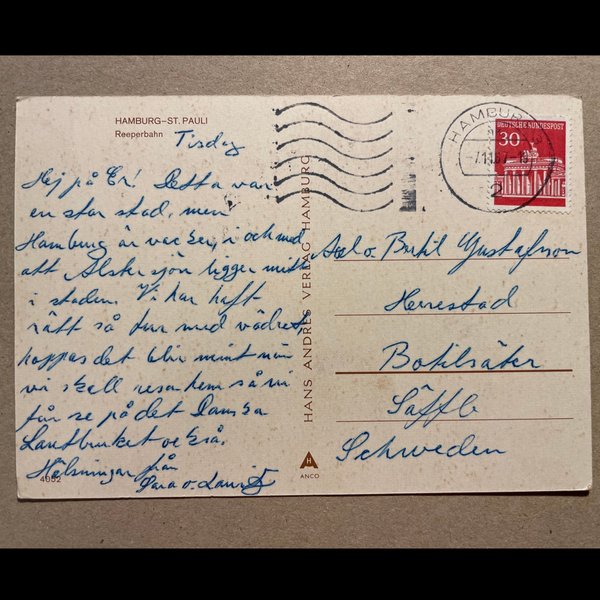 HAMBURG-ST. PAULI
Reeperbahn
Tisdag
Hej på Er! Detta var
en stor stad, men
Hamburg är vacker, i och med
att Alstersjön ligger mitt
i staden. Vi har haft
rätt så tur med vädret
hoppas det blir mint när
vi skall resa hem så vi
får se på det Danska
Lantbruket också.
Hälsningar från
o.
4052
HANS ANDRES VERLAG HAMBURG
H
ANCO
HAMBURG
2
DEUTSCHE BUNDESPOST
30
o. Bertil Gustafsson
Herrestad
Botilsäter
Säffle
Schweden